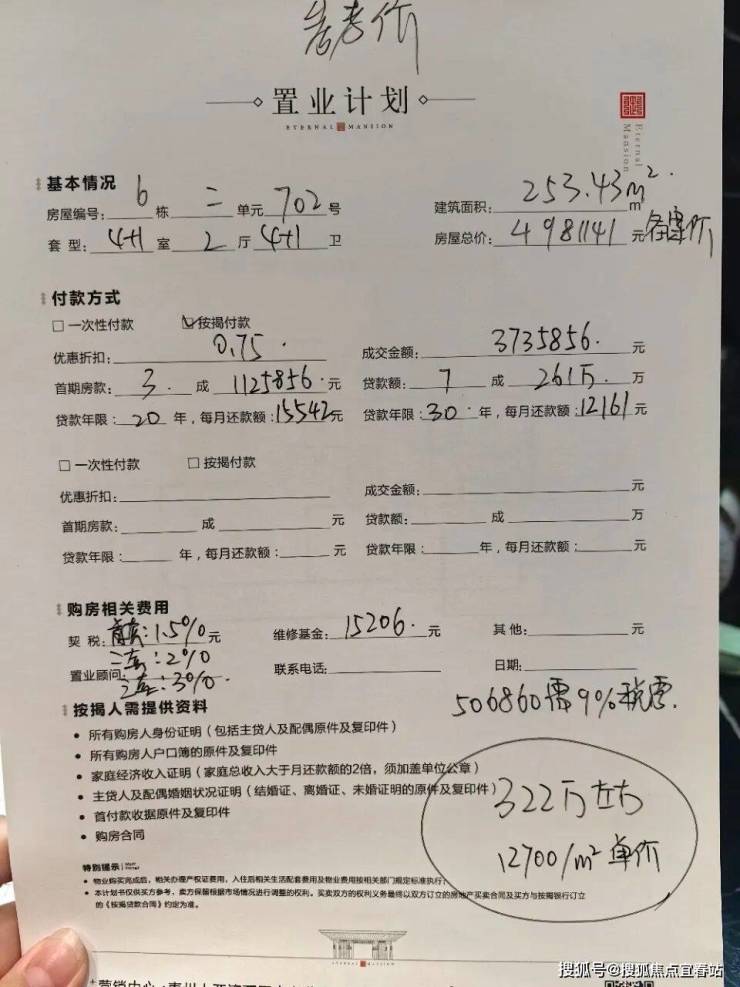 参考价
置业计划
ETERNAL MANSION
Eternal Mansion
基本情况
房屋编号: 6 栋 二 单元 702 号 建筑面积: 253.43m² m²
套 型: 4+1 室 2 厅 4+1 卫 房屋总价: 4981141 元 备案价
付款方式
□ 一次性付款 ☑按揭付款
优惠折扣: 0.75. 成交金额: 3735856. 元
首期房款: 3. 成 1125856. 元 贷款额: 7 成 261万. 万
贷款年限: 20 年, 每月还款额: 15542元 贷款年限: 30 年, 每月还款额: 12161元
□ 一次性付款 □ 按揭付款
优惠折扣: 成交金额: 元
首期房款: 成 元 贷款额: 成 万
贷款年限: 年, 每月还款额: 元 贷款年限: 年, 每月还款额: 元
购房相关费用
契 税: 首套: 1.5% 元 维修基金: 15206. 元 其 他: 元
二套: 2%
置业顾问: 三套: 3%. 联系电话: 日期:
506860需9%税票.
按揭人需提供资料
• 所有购房人身份证明(包括主贷人及配偶原件及复印件)
• 所有购房人户口簿的原件及复印件
• 家庭经济收入证明(家庭总收入大于月还款额的2倍, 须加盖单位公章)
• 主贷人及配偶婚姻状况证明(结婚证、离婚证、未婚证明的原件及复印件)
• 首付款收据原件及复印件
• 购房合同
322万左右
12700/m² 单价
特别提示
• 物业购买完成后, 相关办理产权证费用, 入住后相关生活配套费用及物业费用按相关部门规定标准执行;
• 本计划书仅供买方参考, 卖方保留根据市场情况进行调整的权利。买卖双方的权利义务最终以双方订立的房地产买卖合同及买方与按揭银行订立
的《按揭贷款合同》约定为准。
ETERNAL MANSION
搜狐号@搜狐焦点宜春站
营销中心